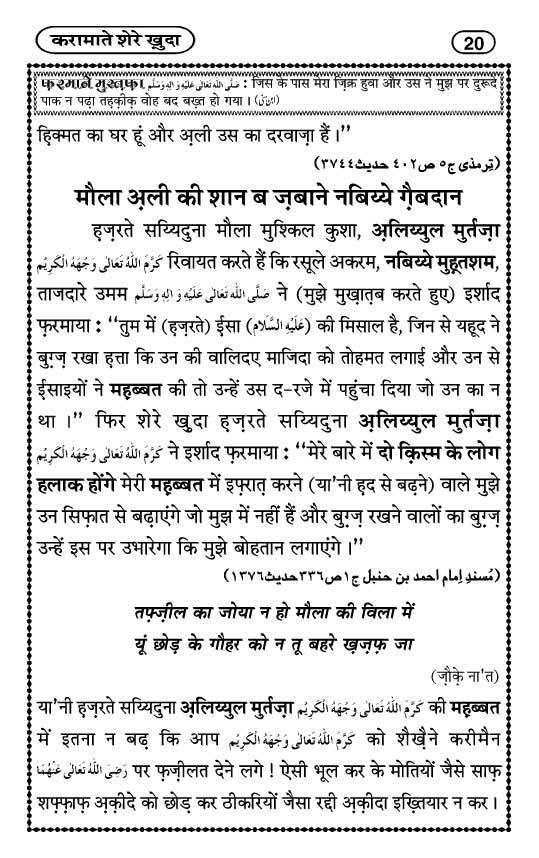 करामाते शेरे ख़ुदा
20
फ़रमाने मुस्तफ़ा صَلَّى اللهُ تَعَالٰى عَلَيْهِ وَاٰلِهٖ وَسَلَّم : जिस के पास मेरा ज़िक्र हुवा और उस ने मुझ पर दुरूदे
पाक न पढ़ा तहक़ीक़ वोह बद बख़्त हो गया ।
हिक्मत का घर हूं और अ़ली उस का दरवाज़ा हैं ।’’
(تِرمذی ج٥ ص٤٠٢ حدیث٣٧٤٤)
मौला अ़ली की शान ब ज़बाने नबिय्ये ग़ैबदान
हज़रते सय्यिदुना मौला मुश्किल कुशा, अ़लिय्युल मुर्तज़ा
كَرَّمَ اللهُ تَعَالٰى وَجْهَهُ الْكَرِيْم रिवायत करते हैं कि रसूले अकरम, नबिय्ये मुह़तशम,
ताजदारे उमम صَلَّى اللهُ تَعَالٰى عَلَيْهِ وَاٰلِهٖ وَسَلَّم ने (मुझे मुख़ात़ब करते हुए) इर्शाद
फ़रमाया : ‘‘तुम में (हज़रते) ई़सा (عَلَيْهِ السَّلَام) की मिसाल है, जिन से यहूद ने
बुग़्ज़ रखा हत्ता कि उन की वालिदए माजिदा को तोहमत लगाई और उन से
ईसाइयों ने महब्बत की तो उन्हें उस द-रजे में पहुंचा दिया जो उन का न
था ।’’ फिर शेरे ख़ुदा हज़रते सय्यिदुना अ़लिय्युल मुर्तज़ा
كَرَّمَ اللهُ تَعَالٰى وَجْهَهُ الْكَرِيْم ने इर्शाद फ़रमाया : ‘‘मेरे बारे में दो क़िस्म के लोग
हलाक होंगे मेरी महब्बत में इफ़्रात़ करने (या’नी हद से बढ़ने) वाले मुझे
उन सिफ़ात से बढ़ाएंगे जो मुझ में नहीं हैं और बुग़्ज़ रखने वालों का बुग़्ज़
उन्हें इस पर उभारेगा कि मुझे बोहतान लगाएंगे ।’’
(مُسندِ اِمام احمد بن حنبل ج١ ص٣٣٦ حدیث١٣٧٦)
तफ़्ज़ील का जोया न हो मौला की विला में
यूं छोड़ के गौहर को न तू बहरे ख़ज़फ़ जा
(ज़ौक़े ना’त)
या’नी हज़रते सय्यिदुना अ़लिय्युल मुर्तज़ा كَرَّمَ اللهُ تَعَالٰى وَجْهَهُ الْكَرِيْم की महब्बत
में इतना न बढ़ कि आप كَرَّمَ اللهُ تَعَالٰى وَجْهَهُ الْكَرِيْم को शैख़ैने करीमैन
رَضِىَ اللهُ تَعَالٰى عَنْهُمَا पर फ़ज़ीलत देने लगे ! ऐसी भूल कर के मोतियों जैसे साफ़
शफ़्फ़ाफ़ अ़क़ीदे को छोड़ कर ठीकरियों जैसा रद्दी अ़क़ीदा इख़्तियार न कर ।